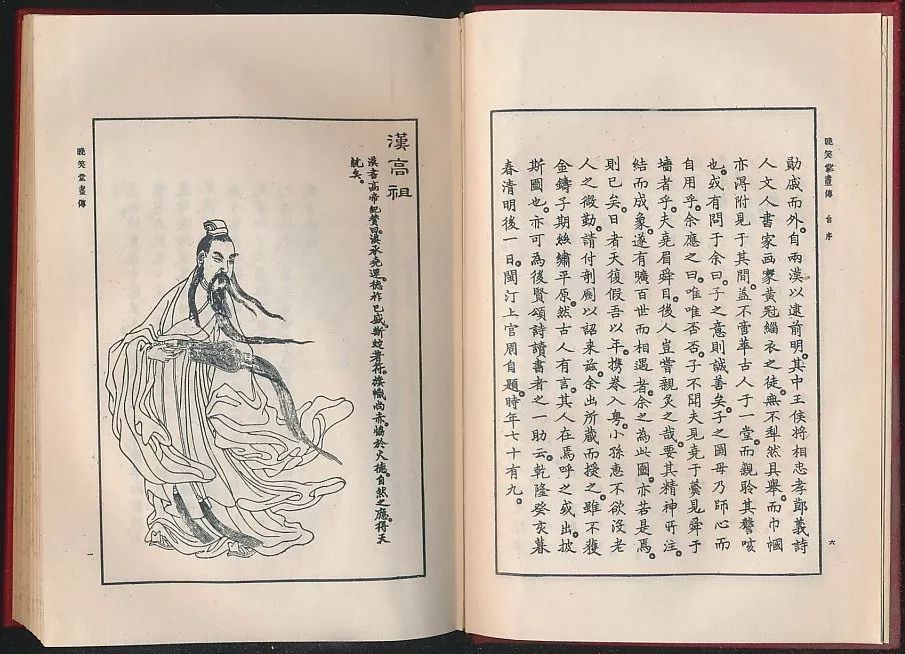 晚笑堂畫傳 自序 六
勛戚而外。自兩漢以逮前明。其中王侯將相忠孝節義詩
人文人書家画家黄冠緇衣之徒。無不犁然具舉。而巾幗
亦淂附見于其間。盖不啻萃古人于一堂。而親聆其謦咳
也。或有問于余曰。子之意則誠善矣。子之圖毋乃師心而
自用乎。余應之曰。唯唯否否。子不聞夫見堯于羹見舜于
墻者乎。夫堯眉舜目。後人豈嘗親炙之哉。要其精神所注。
結而成象。遂有曠百世而相遇者。余之為此圖。亦若是焉。
則已矣。日者天復假吾以年。携卷入粤。小孫惠不欲沒老
人之微勤。請付剞劂以詔来兹。余出所蔵而授之。雖不獲
金鑄子期絲繡平原。然古人有言。其人在焉呼之或出。披
斯圖也。亦可為後賢頌詩讀書者之一助云。乾隆癸亥暮
春清明後一日。閩汀上官周自題。時年七十有九。
漢高祖
漢書高帝紀贊曰。漢承堯運。德祚已盛。斷蛇著符。旗幟尚赤。協於火德。自然之應。得天
統矣。
晚笑堂畫傳 一